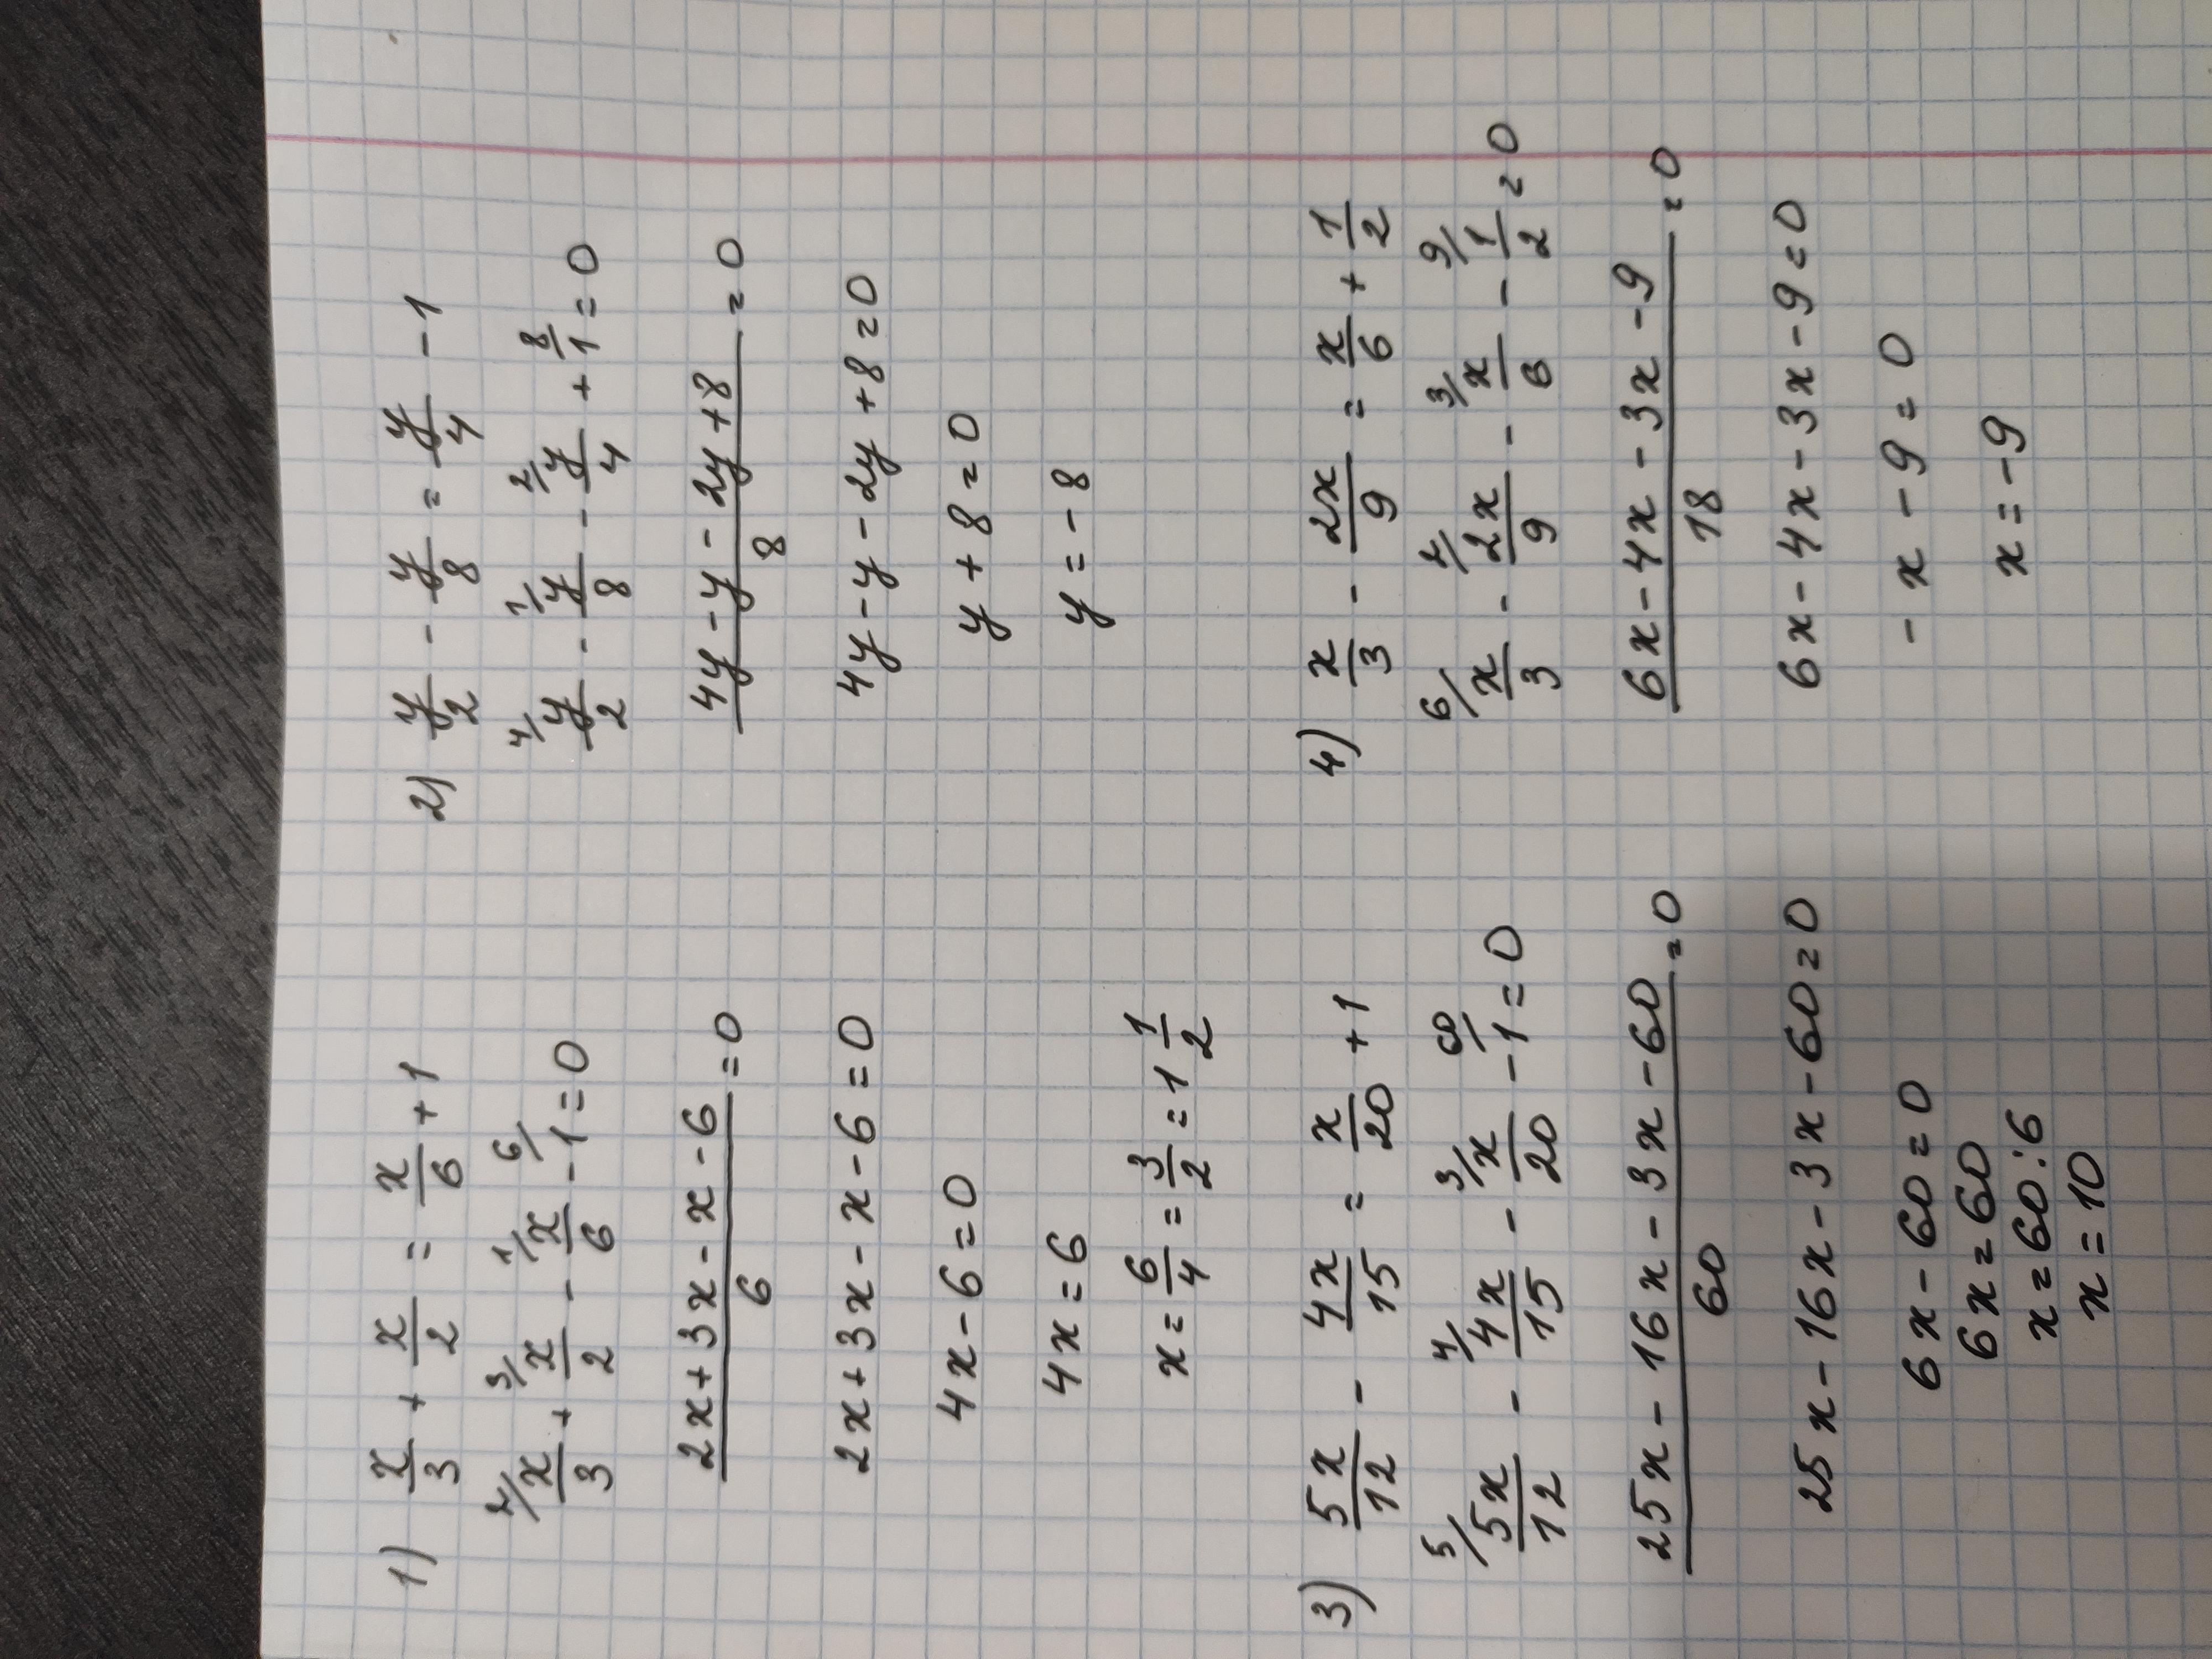 1) x/3 + x/2 = x/6 + 1
2/ x/3 + 3/ x/2 - 1/ x/6 - 6/ 1 = 0
2x + 3x - x - 6 / 6 = 0
2x + 3x - x - 6 = 0
4x - 6 = 0
4x = 6
x = 6/4 = 3/2 = 1 1/2
2) y/2 - y/8 = y/4 - 1
4/ y/2 - 1/ y/8 - 2/ y/4 + 8/ 1 = 0
4y - y - 2y + 8 / 8 = 0
4y - y - 2y + 8 = 0
y + 8 = 0
y = -8
3) 5x/12 - 4x/15 = x/20 + 1
5/ 5x/12 - 4/ 4x/15 - 3/ x/20 - 60/ 1 = 0
25x - 16x - 3x - 60 / 60 = 0
25x - 16x - 3x - 60 = 0
6x - 60 = 0
6x = 60
x = 60 : 6
x = 10
4) x/3 - 2x/9 = x/6 + 1/2
6/ x/3 - 2/ 2x/9 - 3/ x/6 - 9/ 1/2 = 0
6x - 4x - 3x - 9 / 18 = 0
6x - 4x - 3x - 9 = 0
- x - 9 = 0
x = -9